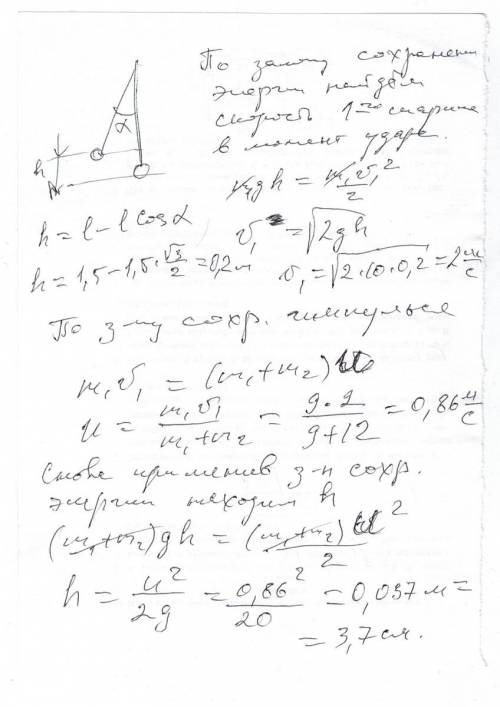 По закону сохранения
энергии найдём
скорость 1-го шарика
в момент удара.
α
h
m₁gh = m₁v₁²/2
h = l - l cosα
v₁ = √2gh
h = 1,5 - 1,5·√3/2 = 0,2 м
v₁ = √2·10·0,2 = 2 м/с
По з-ну сохр. импульса
m₁v₁ = (m₁+m₂)u
u = m₁v₁/m₁+m₂ = 9·2/9+12 = 0,86 м/с
Снова применив з-н сохр.
энергии находим h
(m₁+m₂)gh = (m₁+m₂)u²/2
h = u²/2g = 0,86²/20 = 0,037 м =
= 3,7 см.